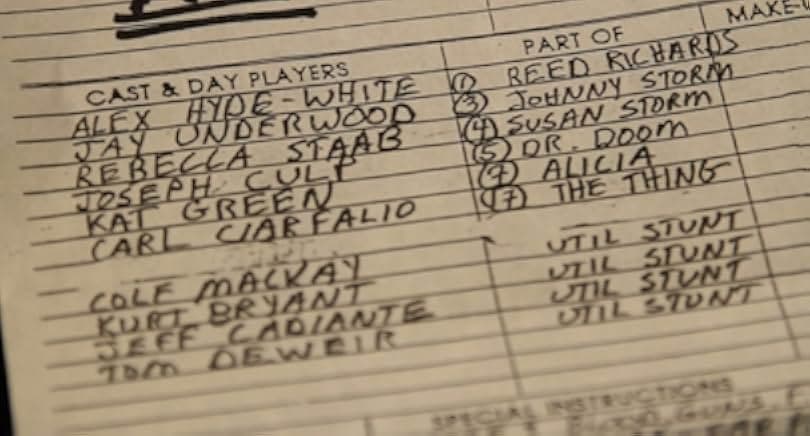 MAKE-U
CAST & DAY PLAYERS PART OF
ALEX HYDE-WHITE (1) REED RICHARDS
JAY UNDERWOOD (3) JOHNNY STORM
REBECCA STAAB (4) SUSAN STORM
JOSEPH CULP (5) DR. DOOM
KAT GREEN (7) ALICIA
CARL CIARFALIO (17) THE THING
COLE MACKAY UTIL STUNT
KURT BRYANT UTIL STUNT
JEFF CADIANTE UTIL STUNT
TOM DEWEIR UTIL STUNT
SPECIAL INSTRUCTIONS